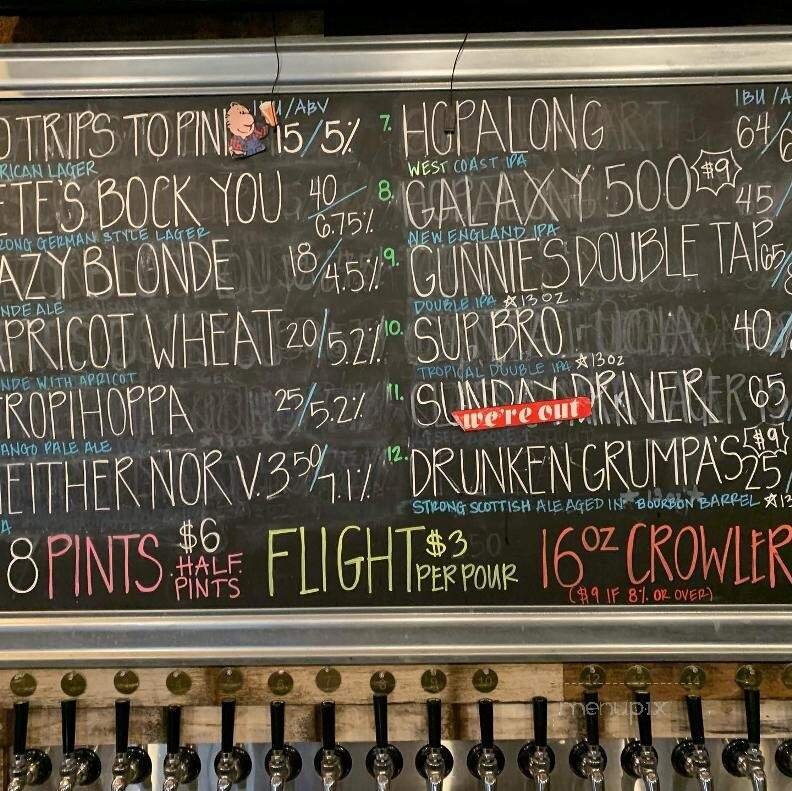 IBU/ABV
O TRIPS TO PIN 15/5%
RICAN LAGER
ETE'S BOCK YOU 40/6.75%
RONG GERMAN STYLE LAGER
AZY BLONDE 18/4.5%
NDE ALE
APRICOT WHEAT 20/5.2%
NDE WITH APRICOT
TROPIHOPPA 25/5.2%
ANGO PALE ALE
NEITHER NOR V.3 50/7.1%
A
IBU/A
7. HOPALONG 64/6
WEST COAST IPA
8. GALAXY 500 $9 45/
NEW ENGLAND IPA
9. GUNNIE'S DOUBLE TAP 65/8
DOUBLE IPA ☆13OZ
10. SUP, BRO 40/
TROPICAL DOUBLE IPA ☆13OZ
11. SUNDAY DRIVER 65/
we're out
12. DRUNKEN GRUMPA'S $9 25/
STRONG SCOTTISH ALE AGED IN BOURBON BARREL ☆13
8 PINTS $6 HALF PINTS
FLIGHT $3 PER POUR
16OZ CROWLER
($9 IF 8% OR OVER)
7
8
9
10
12
14
menupix